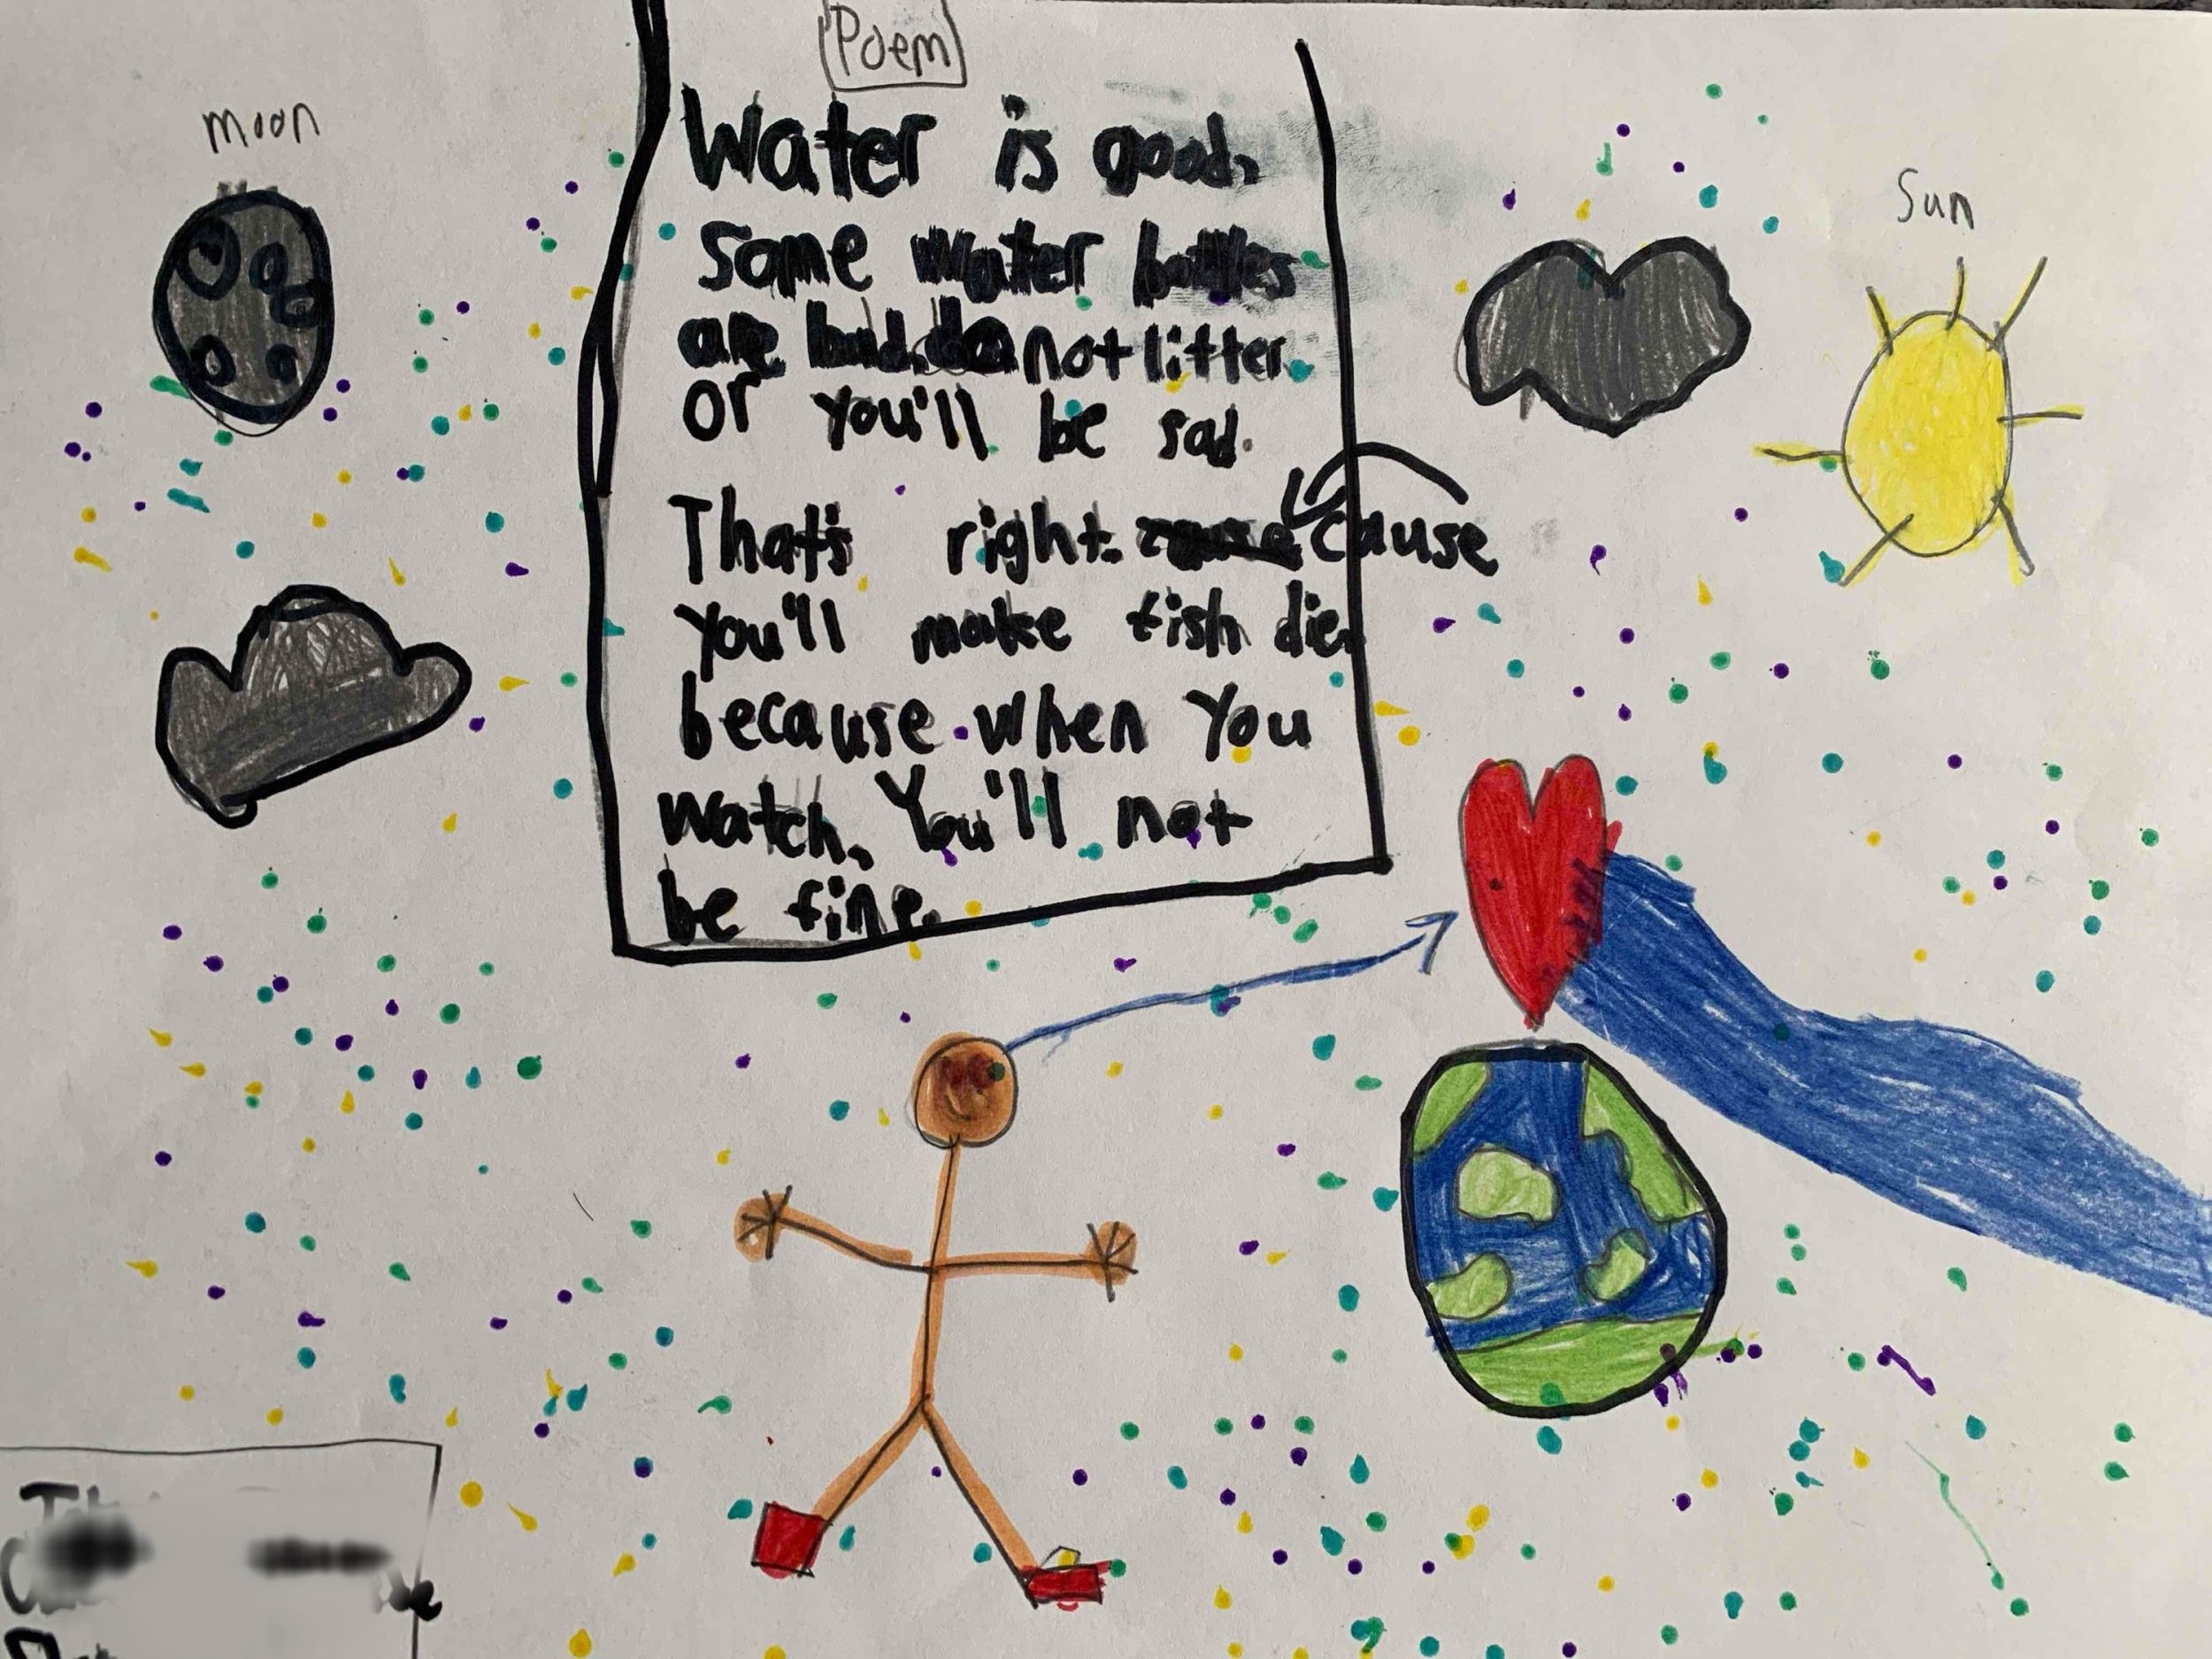 Poem
moon
Sun
Water is good,
some water bottles
are bad. do not litter.
or you'll be sad.
That's right. cause
you'll make fish die.
because when you
watch, You'll not
be fine.